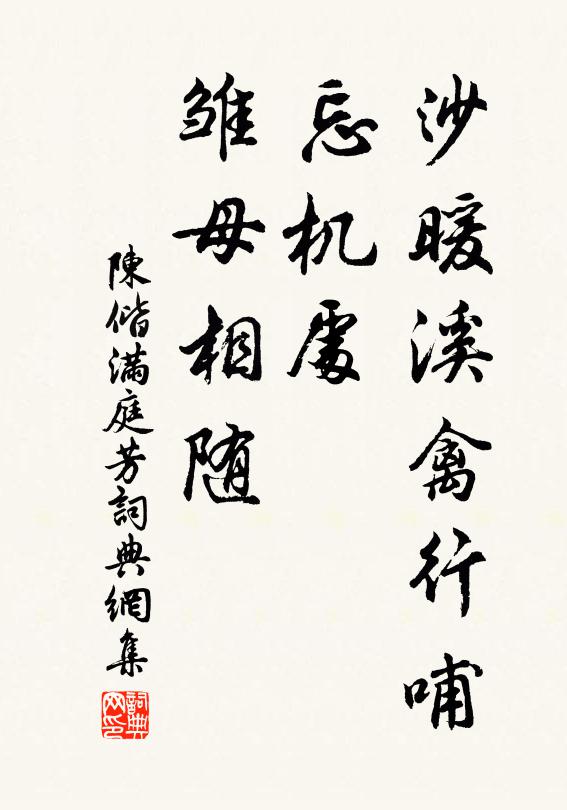 沙暖溪禽行哺
忘机處
雏母相随
陳偕满庭芳詞典網集
詞典网印